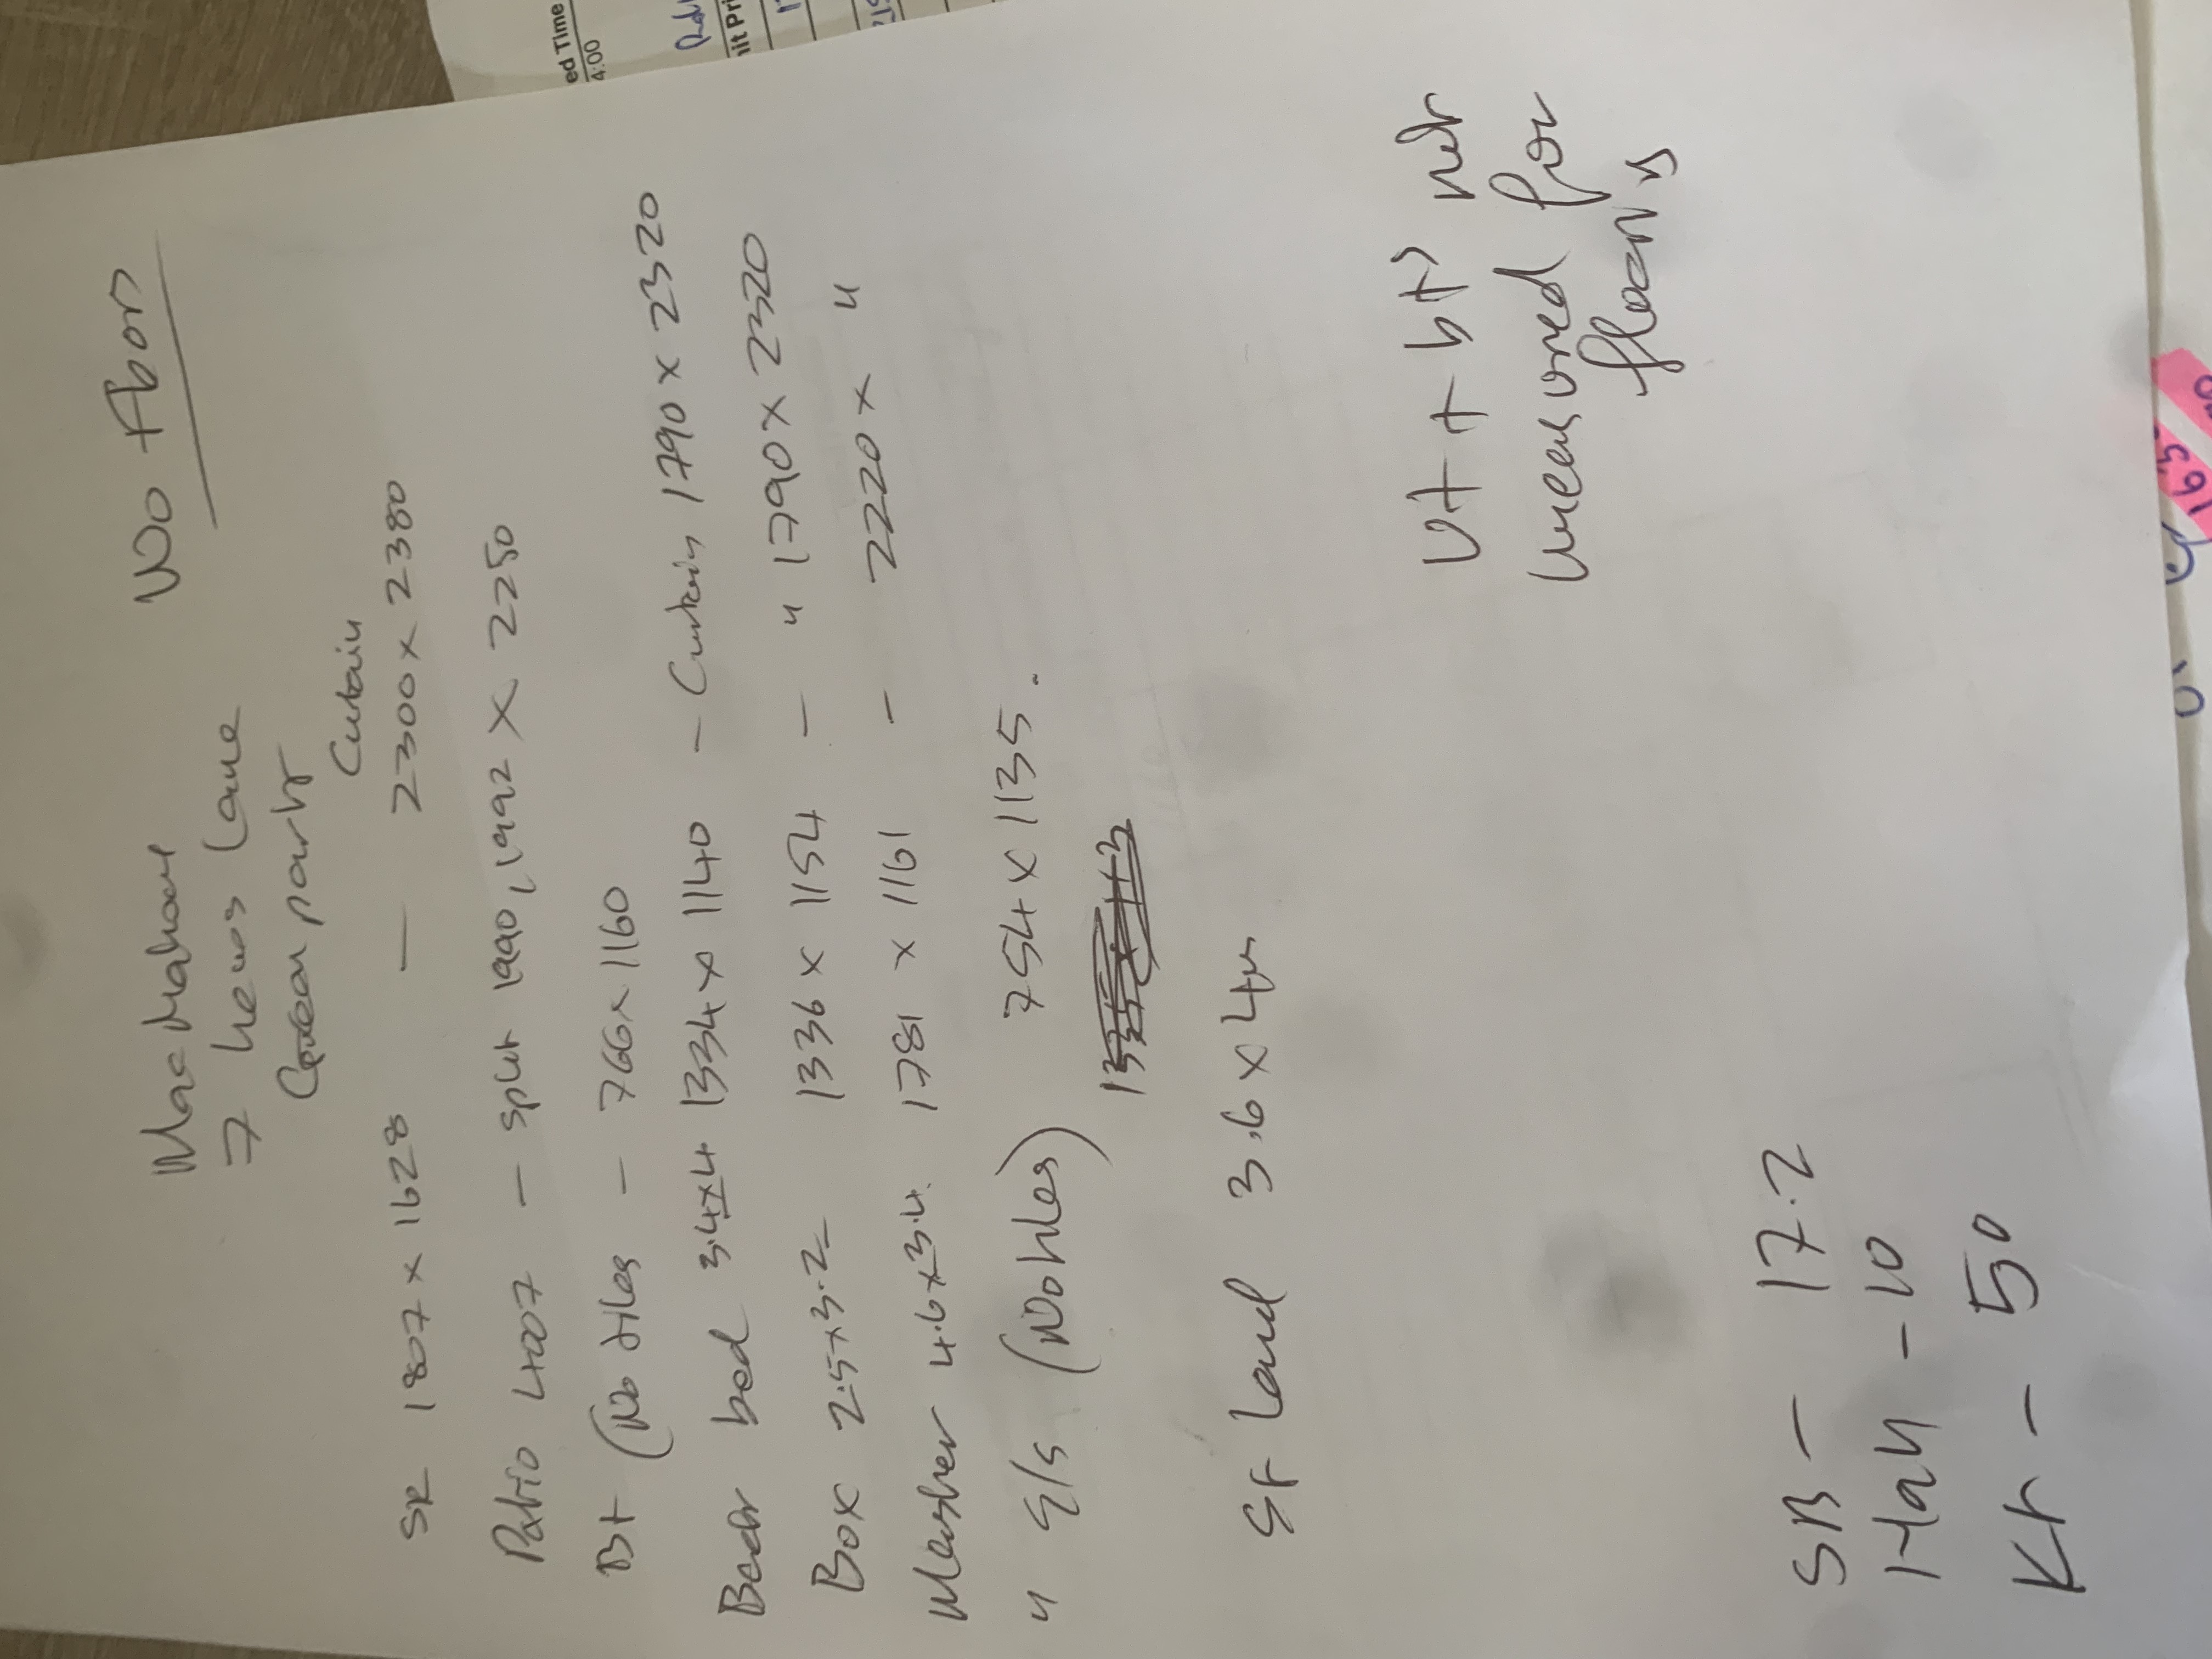 No Floor
MacMahon
7 hews lane
Queen park
Curtain
SR 1807 x 1628 — 2300 x 2380
Patio 4007 - split 1990, 1992 x 2250
Bt (No tiles - 766 x 1160
Back bed 3.4x4 1334 x 1140 - Curtain 1790 x 2320
Box 2.5x3.2 1336 x 1154 - " 1790 x 2320
Master 4.6x3.4 1781 x 1161 - 2220 x "
" E/s (No tiles) 754 x 1135.
SF Land 3.6 x 4m
Ut + bt not
measured for
floors
SR - 17.2
Hall - 10
Kt - 50
ed Time
4:00